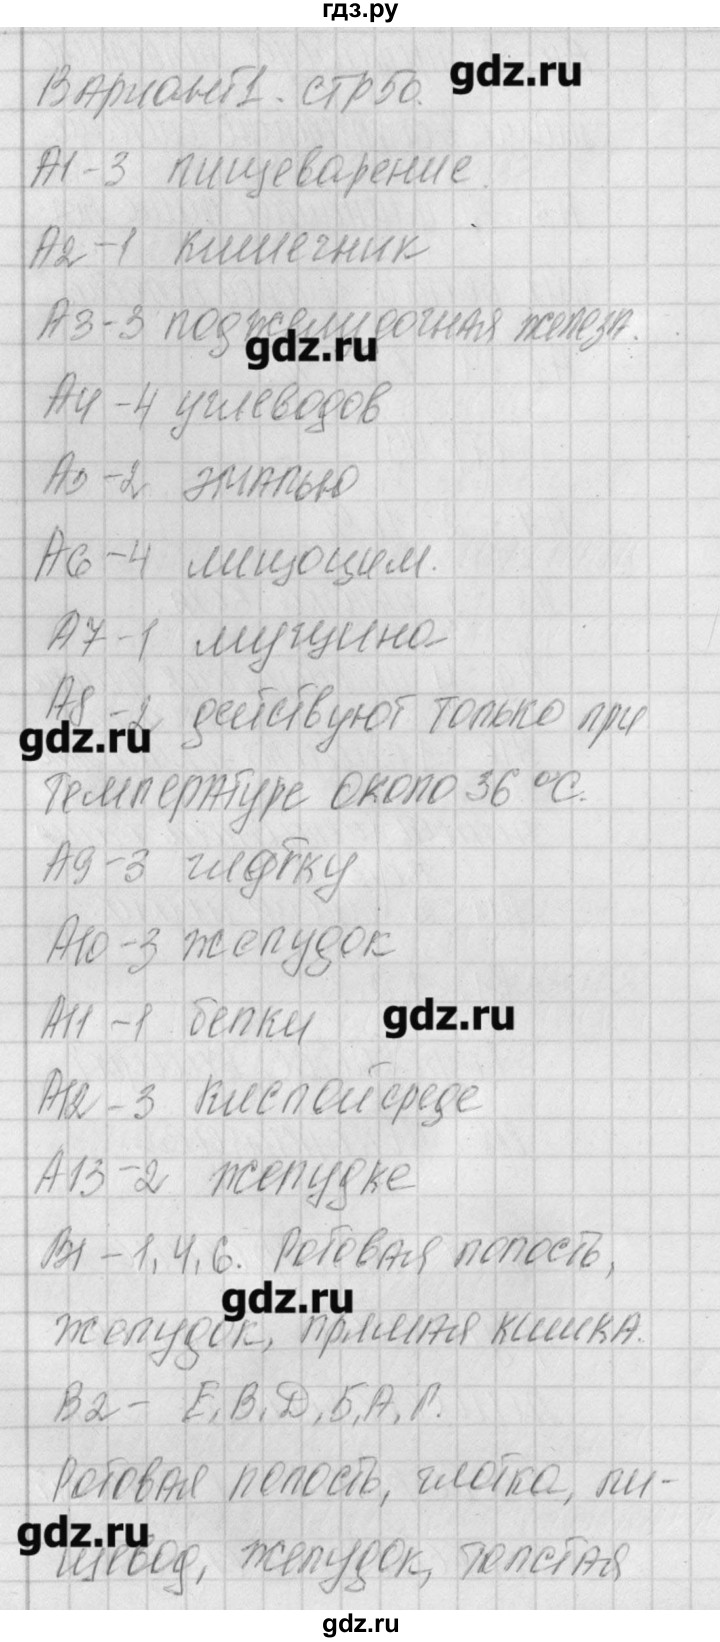 гдз.ру
Вариант 1. стр 50.
gdz.ru
А1-3 пищеварение.
А2-1 кишечник
А3-3 поджелудочная железа.
gdz.ru
А4-4 углеводов
А5-2 эмалью
А6-4 лищоцим.
А7-1 мущино
А8-2 действуют только при
gdz.ru
температуре около 36 °С.
А9-3 глотку
А10-3 желудок
А11-1 белки
gdz.ru
А12-3 кислой среде
А13-2 желудке
В1-1,4,6. Ротовая полость,
gdz.ru
желудок, прямая кишка.
В2- Е,В,Д,Б,А,Г.
Ротовая полость, глотка, пи-
gdz.ru
щевод, желудок, толстая
gdz.ru